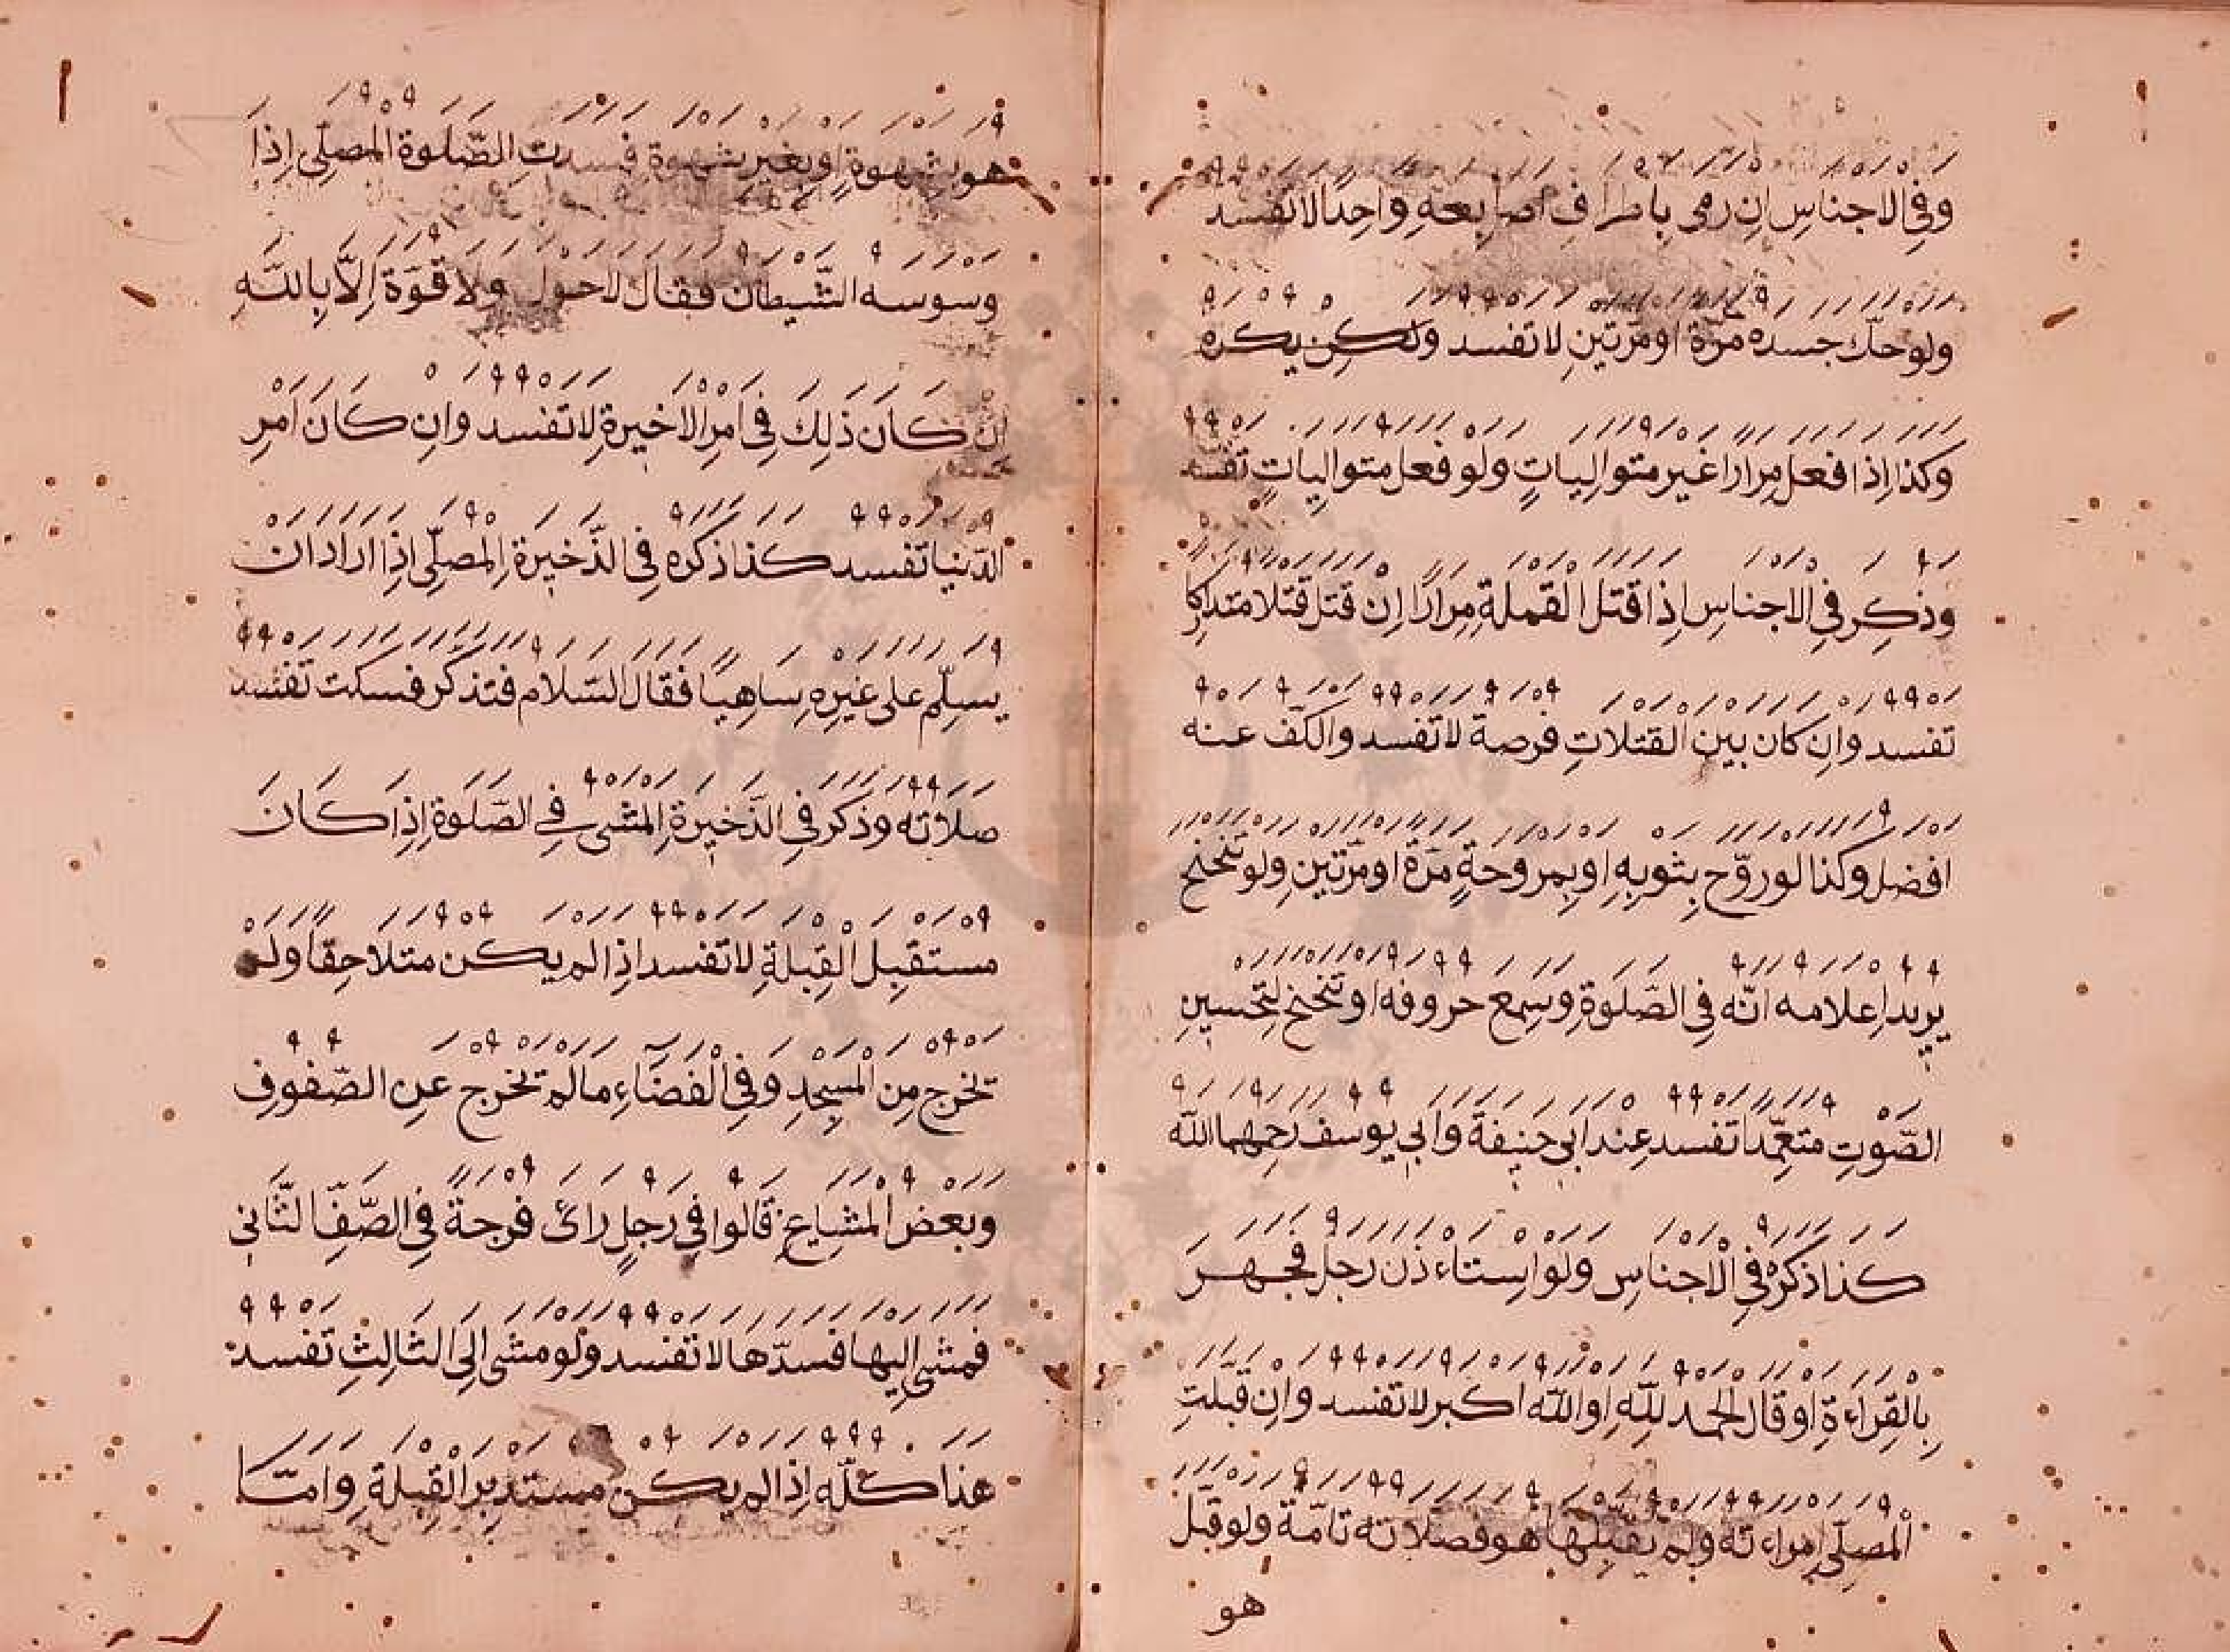 وفي الاجناس ان رمى باطراف اصابعه واحدا لا تفسد
ولو حك جسده مرة او مرتين لا تفسد ولكن يكره
وكذا اذا فعل مرارا غير متواليات ولو فعل متواليات تفسد
وذكر في الاجناس اذا قتل القملة مرارا ان قتل قتلا متداركا
تفسد وان كان بين القتلات فرصة لا تفسد والكف عنه
افضل وكذا لو روّح بثوبه او بمروحة مرة او مرتين ولو تنحنح
يريد اعلامه انّه في الصلوة وسمع حروفه او تنحنح لتحسين
الصّوت متعمّدا تفسد عند ابي حنيفة وابي يوسف رحمهما الله
كذا ذكره في الاجناس ولو استاءذن رجل فجهر
بالقراءة او قال الحمد لله او الله اكبر لا تفسد وان قبلت
المصلّي امراءته ولم يقبلها هو فصلاته تامّة ولو قبّل
هو
هو بشهوة او بغير شهوة فسدت الصّلوة المصلّي اذا
وسوسه الشّيطان فقال لا حول ولا قوّة الّا بالله
ان كان ذلك في امر الاخيرة لا تفسد وان كان امر
الدّنيا تفسد كذا ذكره في الذّخيرة المصلّي اذا اراد ان
يسلّم على غيره ساهيا فقال السّلام فتذكّر فسكت تفسد
صلاته وذكر في الذّخيرة المشي في الصّلوة اذا كان
مستقبل القبلة لا تفسد اذا لم يكن متلاحقا ولم
تخرج من المسجد وفي الفضاء ما لم تخرج عن الصّفوف
وبعض المشايخ قالوا في رجل رائ فرجة في الصّفّ الثّاني
فمشى اليها فسدّها لا تفسد ولو مشى الى الثالث تفسد
هذا كلّه اذا لم يكن مستدبر القبلة وامّا